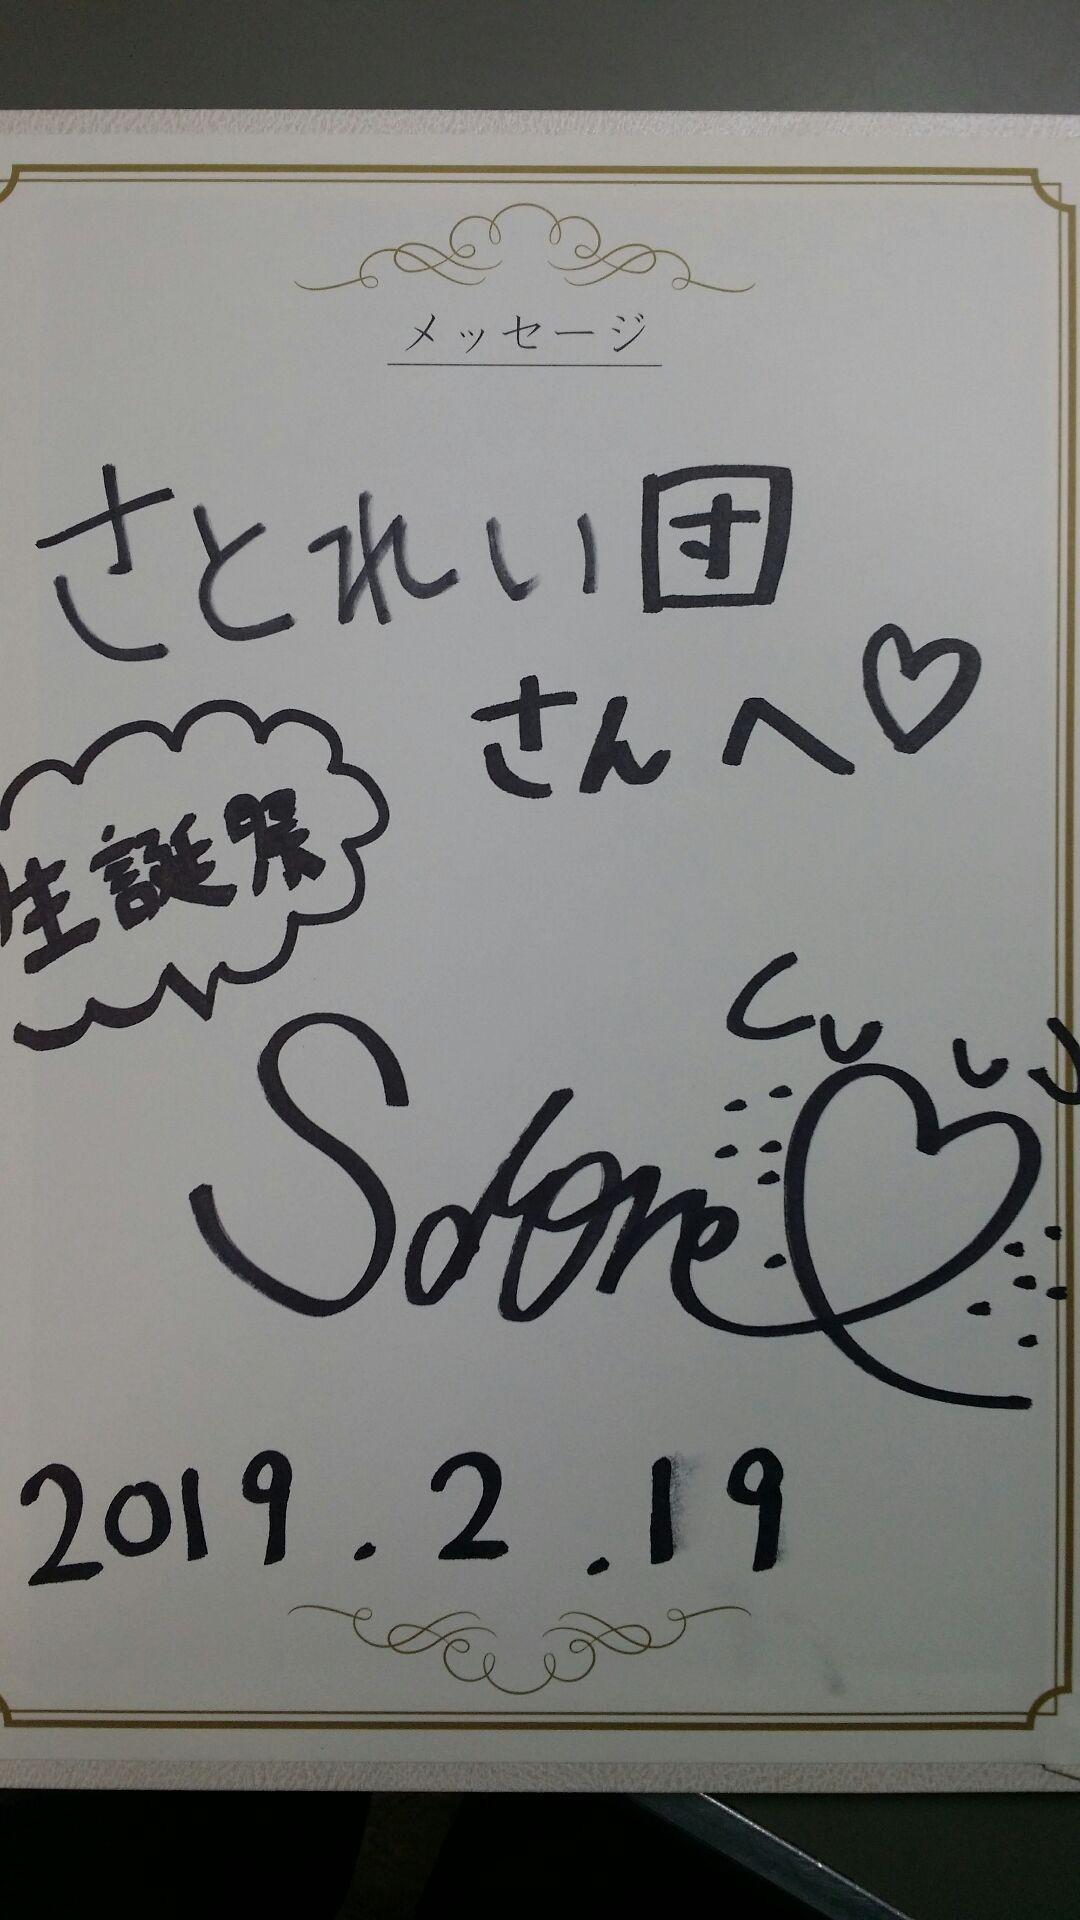 メッセージ
さとれい団
さんへ♡
生誕祭
2019.2.19